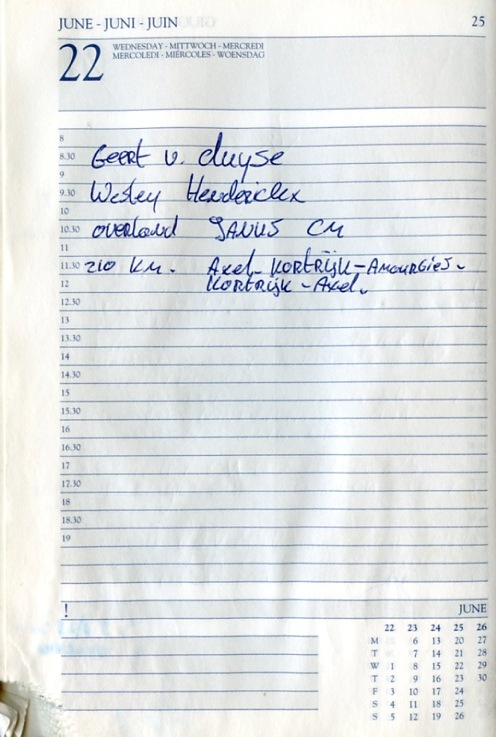 JUNE - JUNI - JUIN 25
22 WEDNESDAY - MITTWOCH - MERCREDI
MERCOLEDI - MIÉRCOLES - WOENSDAG
8
8.30 Geert v. duyse
9
9.30 Wesley Henderickx
10
10.30 overland JANUS CM
11
11.30 210 km. Axel-KORTRIJK-Amougies-
12 KORTRIJK - Axel.
12.30
13
13.30
14
14.30
15
15.30
16
16.30
17
17.30
18
18.30
19
! JUNE
22 23 24 25 26
M 6 13 20 27
T 7 14 21 28
W 1 8 15 22 29
T 2 9 16 23 30
F 3 10 17 24
S 4 11 18 25
S 5 12 19 26